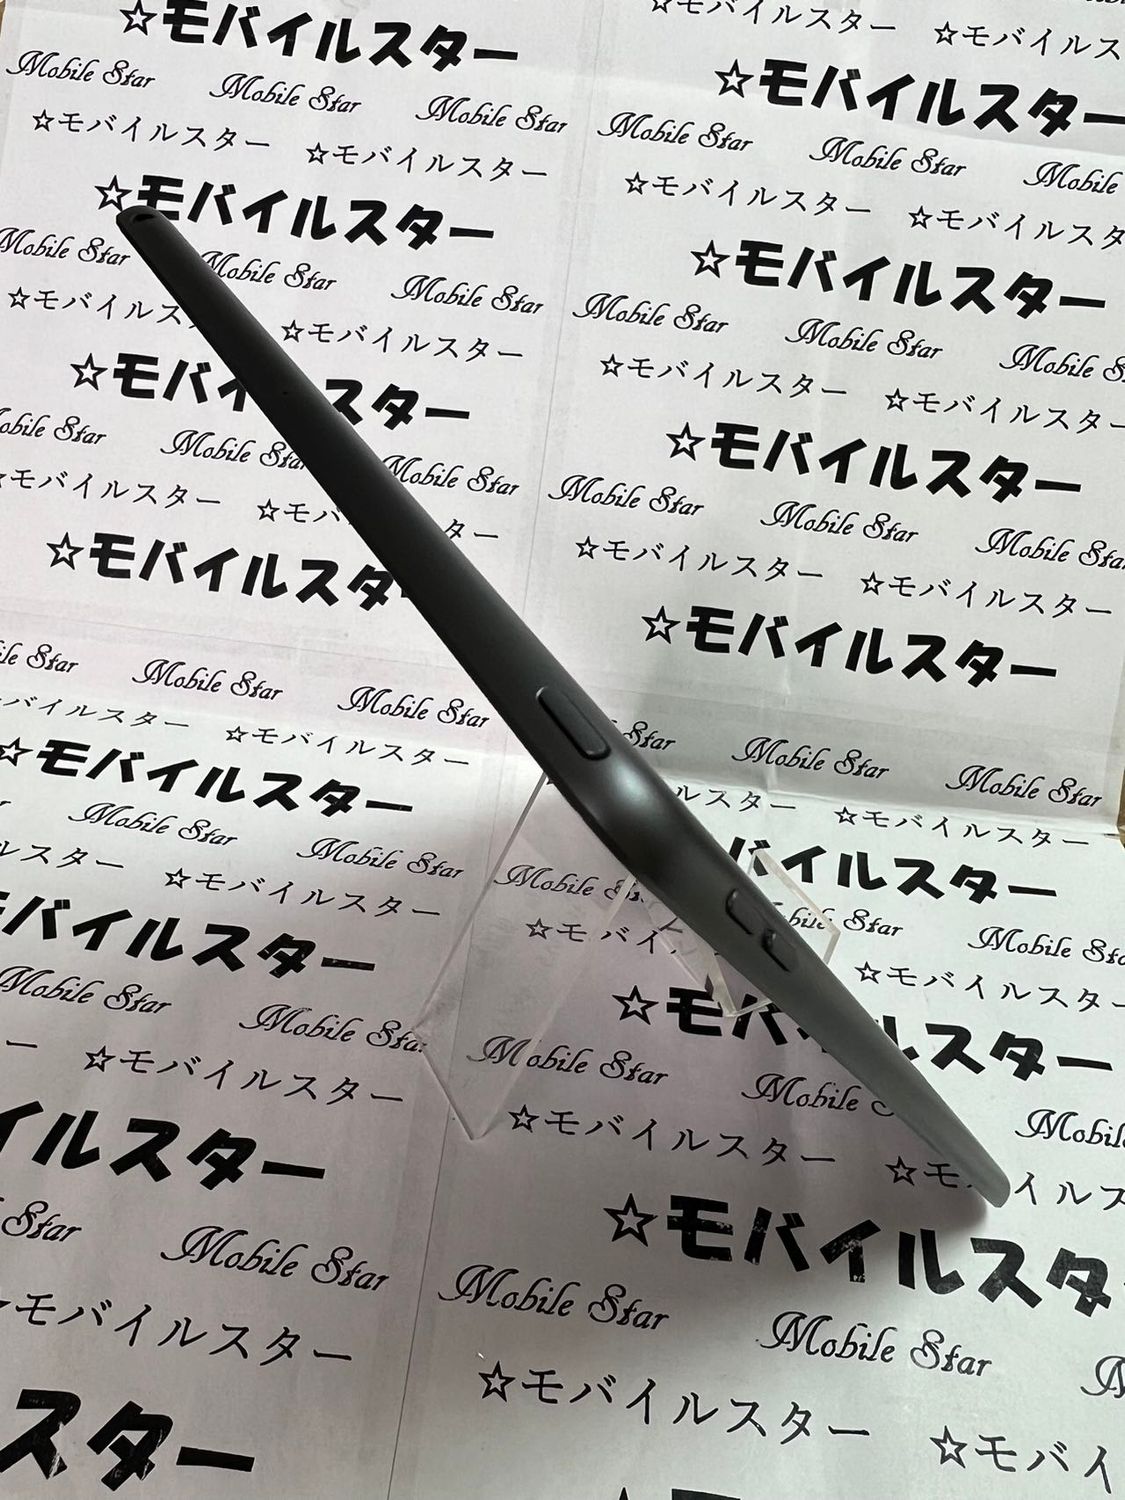 ☆モバイルスター
Mobile Star Mobile Star Mobile Star
☆モバイルスター ☆モバイルスター
☆モバイルスター
Mobile Star Mobile Star Mobile Star
☆モバイルスター
☆モバイル スター
Mobile Star Mobile Star Mobile Star
モバイルスター
☆モバイルスタ
Mobile Star Mobile Star
バイルスター ☆モバイルスター
☆モバイルスター
Mobile Star Mobile Star
ルスター ☆モバイルスター
モバイルスター
Mobile Star Mobile Star
☆モバイルスター
イルスター
Star Mobile Star
モバイルスター
スター
☆モバイルス
☆モバイルスター
Mobile Star Mobile Star Mobile
☆モバイルスター ☆モバイルス
☆モバイルスター
Mobile Star Mobile Star Mobile
☆モバイルスター ☆モバイルスター
☆モバイルスター
Mobile Star Mobile Star Mobile Star
☆モバイルスター ☆モバイルスター
☆モバイルスター
Star Mobile Star Mobile Star
ルスター ☆モバイルスター
バイルスター
Mobile Star
☆モバイ ☆モバイルスター
☆モバイルスター
Mobile Star Mobile Mobile
☆モバイルスター ☆モ イルス
☆モバイルスタ
Mobile Star Mobile Star
☆モバイルスター ☆モバイ